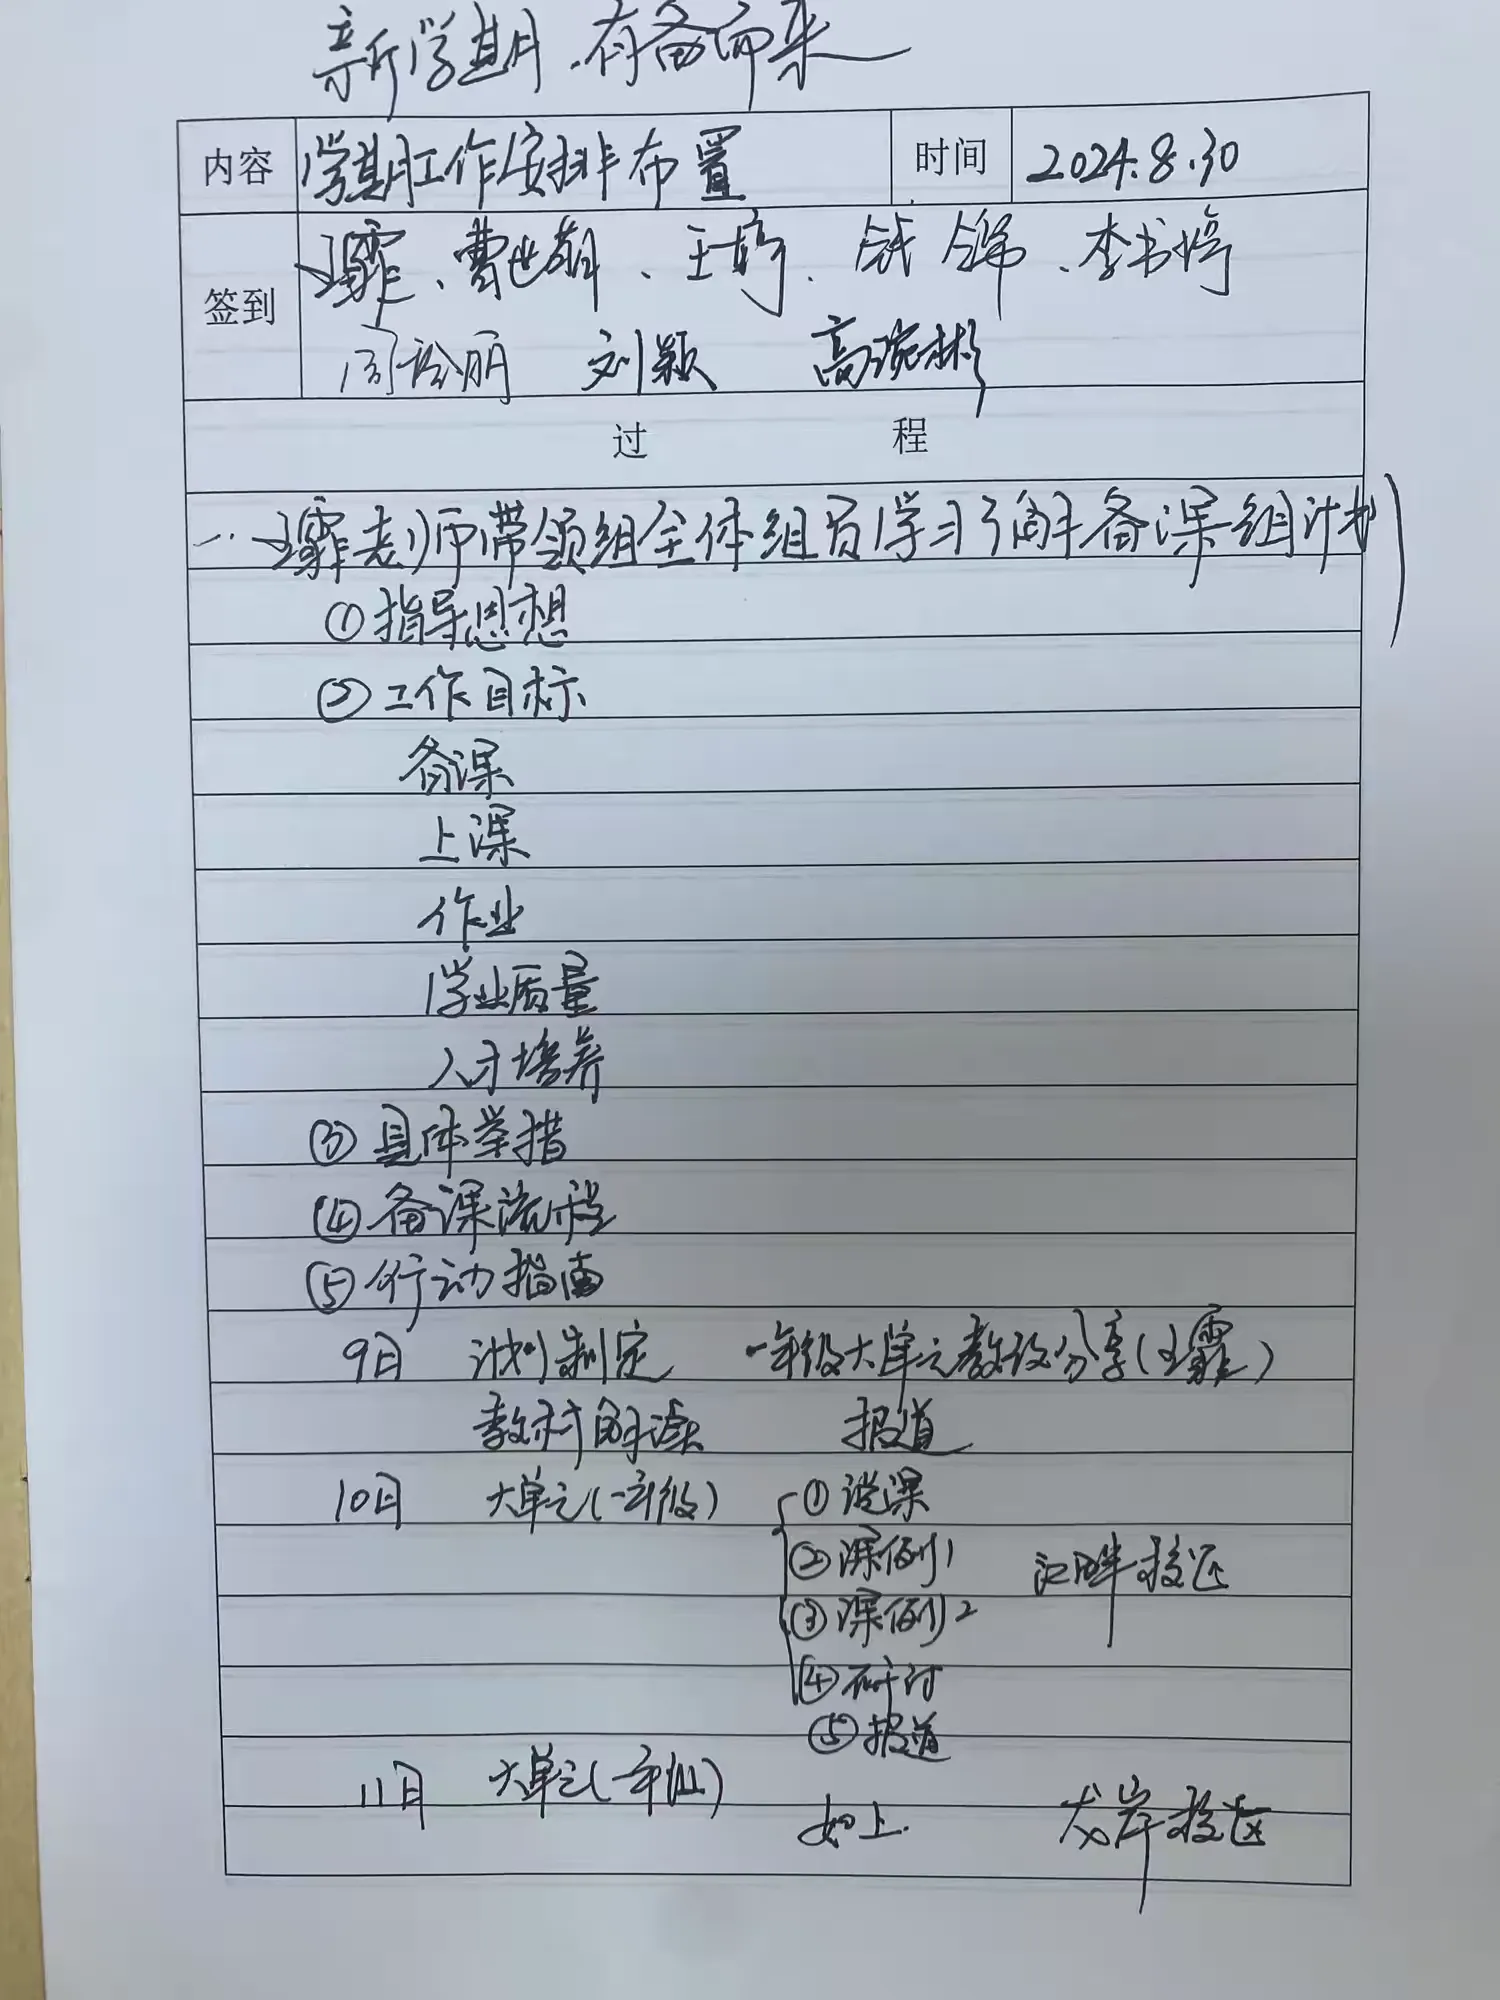 新学期.有备而来
内容 学期工作安排布置 时间 2024.8.30
王霏、曹世萌、王婷、钱锦、李书婷
签到
周玲丽 刘颖 高琬彬
过 程
一.王霏老师带领组全体组员学习了解备课组计划
①指导思想
②工作目标
备课
上课
作业
学业质量
人才培养
③具体举措
④备课流程
⑤行动指南
9月 计划制定 一年级大单元教设分享(王霏)
教材解读 报道
10月 大单元(一年级) ①说课
②课例1 江畔校区
③课例2
④研讨
⑤报道
11月 大单元(一年级)
如上. 龙岸校区